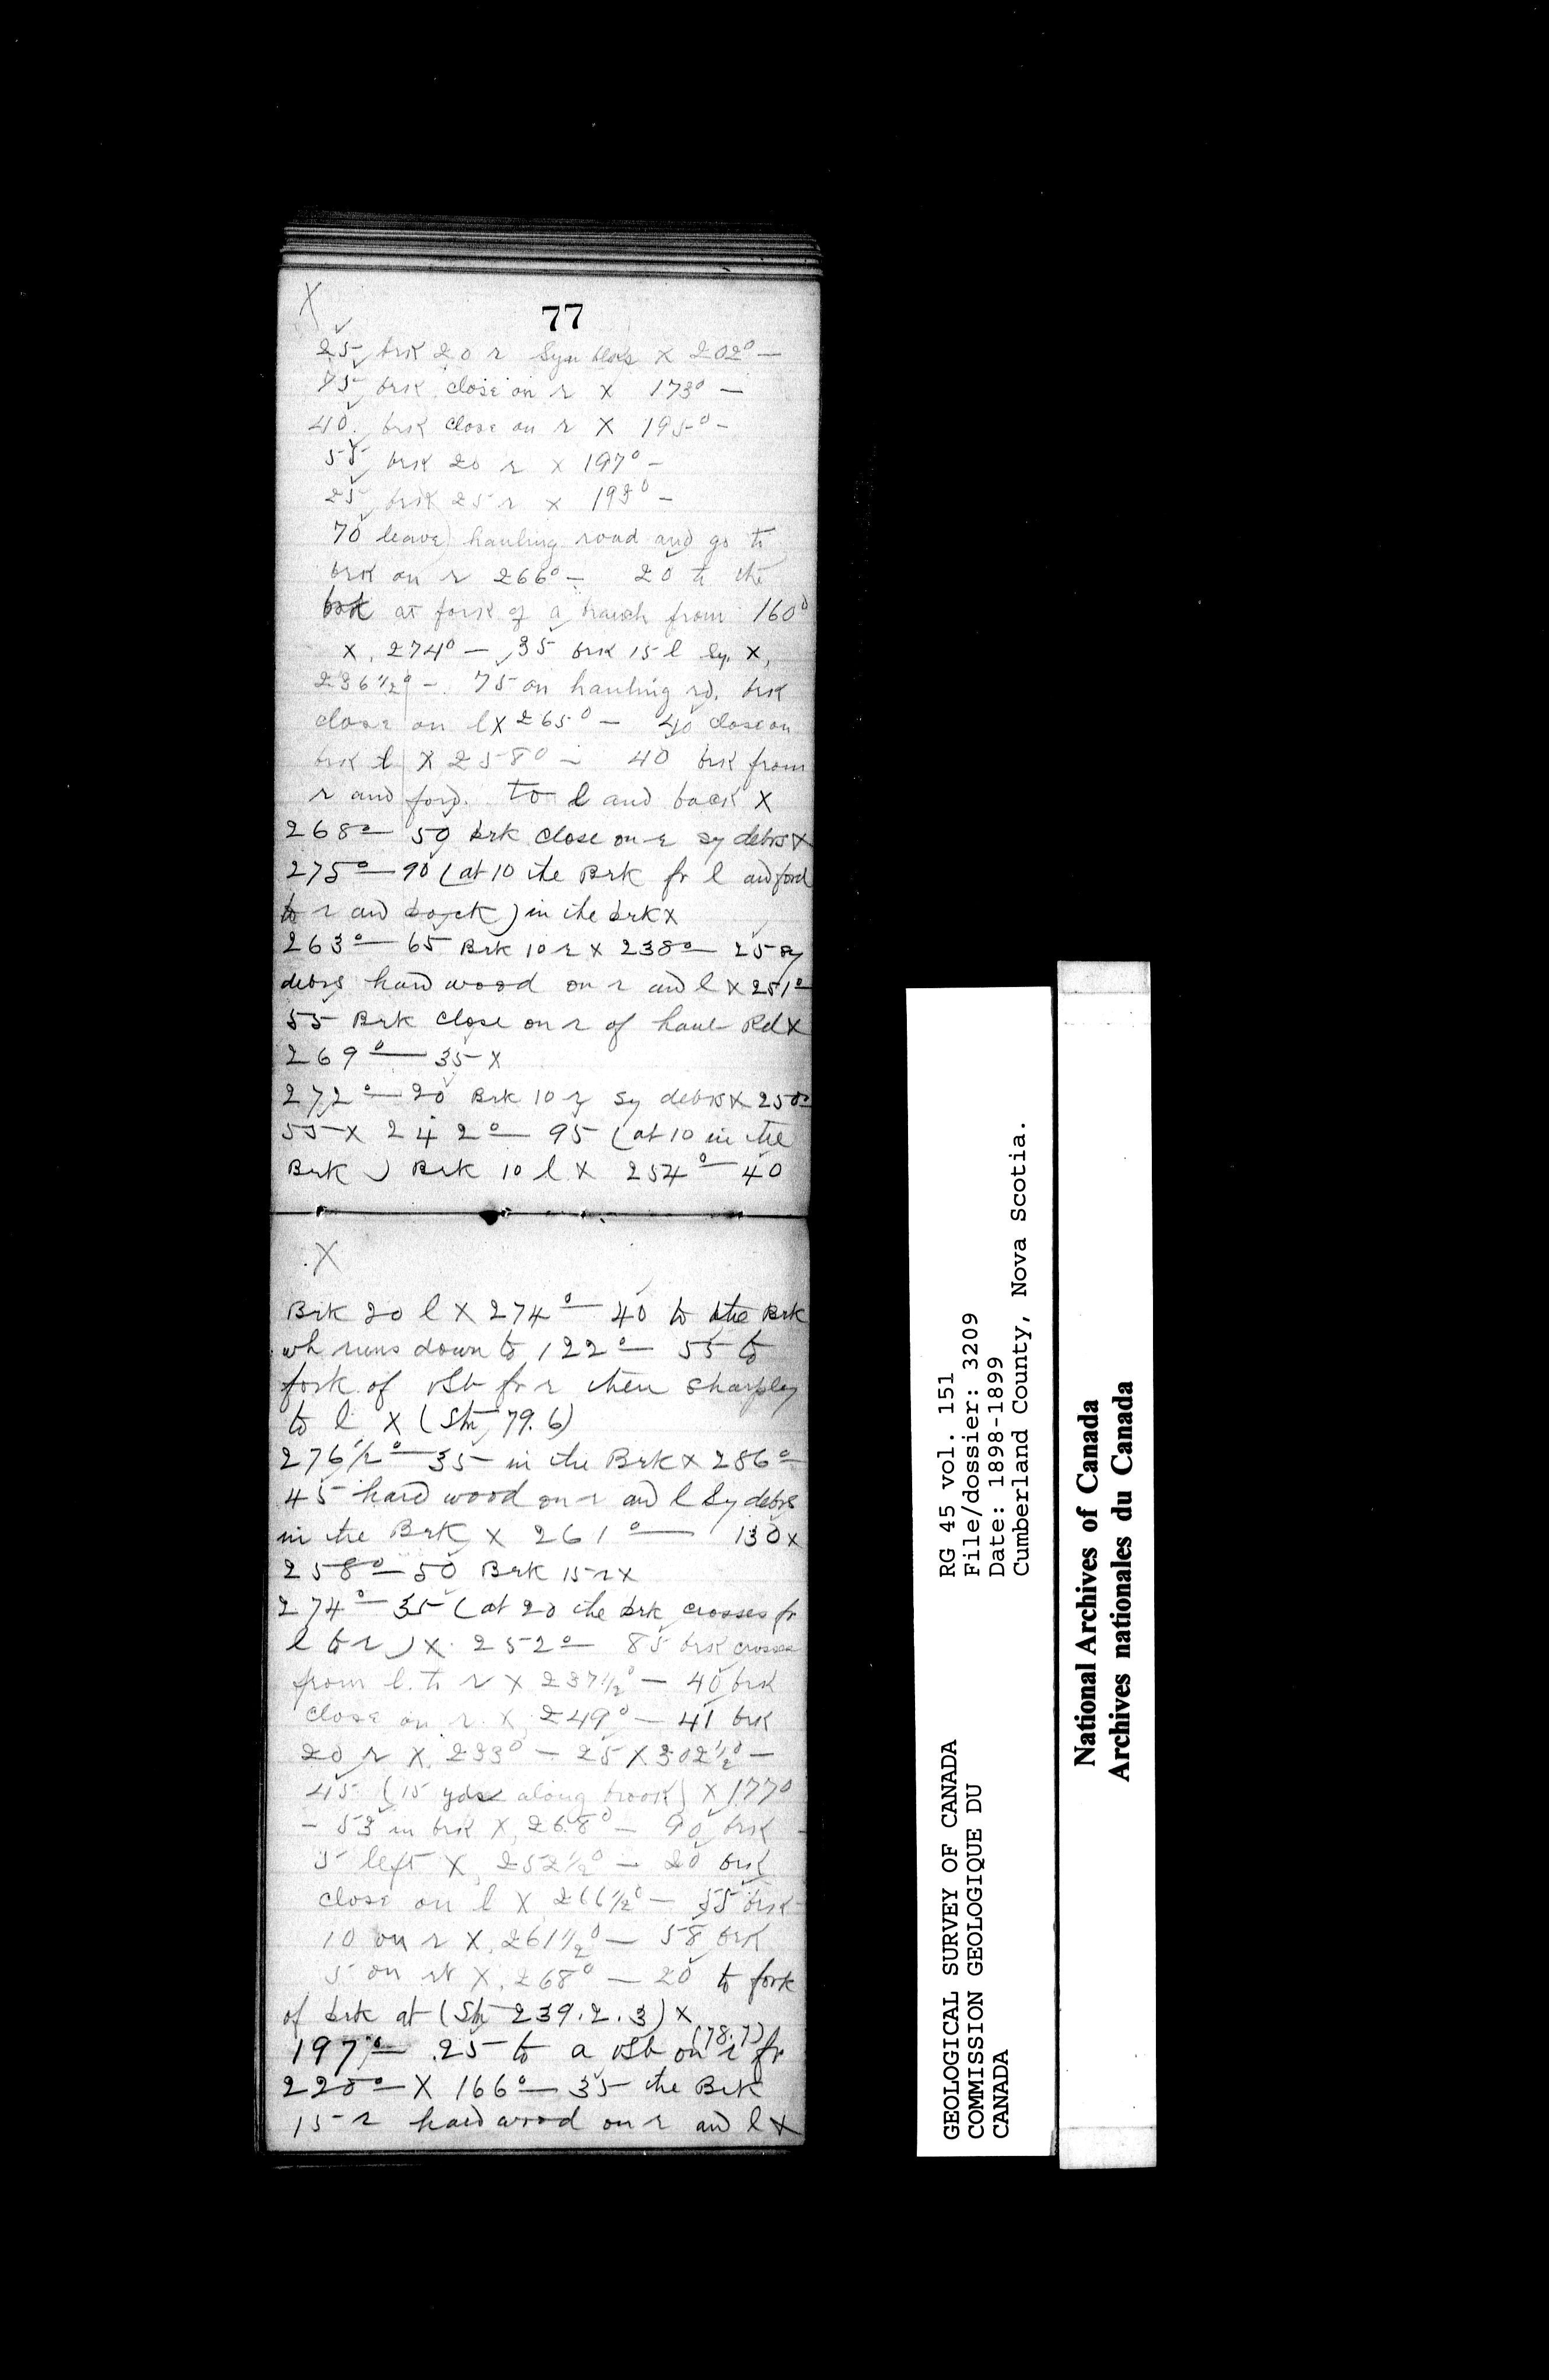 X
77
25 brk 20 r Syn blks X 202° —
75 brk close on r X 173° —
40. brk close on r X 195° —
55 brk 20 r X 197° —
25 brk 25 r X 193° —
70 leave hauling road and go to
brk on r 266° — 20 to the
brk at fork of a branch from 160°
X. 274° — 35 brk 15 l Sy. X.
236½° — 75 on hauling rd. brk
close on l X 265° — 40 close on
brk l X 258° — 40 brk from
r and ford. to l and back X
268° — 50 brk close on r sy debris X
275° — 90 (at 10 the Brk fr l and ford
to r and back) in the brk X
263° — 65 Brk 10 r X 238° — 25 sy
debris hard wood on r and l X 251° —
55 Brk close on r of haul Rd X
269° — 35 X
272° — 20 Brk 10 r sy debris X 250° —
55 X 242° — 95 (at 10 in the
Brk) Brk 10 l X 254° — 40
X
Brk 20 l X 274° — 40 to the Brk
wh runs down to 122° — 55 to
fork of vSb fr r then sharpley
to l X (Stn 79.6)
276½° — 35 in the Brk X 286° —
45 hard wood on r and l Sy debris
in the Brk X 261° — 130 X
258° — 50 Brk 15 r X
274° — 35 (at 20 the brk crosses fr
l to r) X. 252° — 85 brk crosses
from l. to r X 237½° — 40 brk
close on r. X 249° — 41 brk
20 r X. 233° — 25 X 302½° —
45 (15 yds along brook) X 177°
— 53 in brk X. 268° — 90 brk
5 left X 252½° — 20 brk
close on l X 266½° — 55 brk
10 on r X. 261½° — 58 brk
5 on rt X. 268° — 20 to fork
of brk at (Stn 239.2.3) X
(78.7)
197° — 25 to a vSb on r fr
220° — X 166° — 35 the Brk
15 r hard wood on r and l X
GEOLOGICAL SURVEY OF CANADA
COMMISSION GEOLOGIQUE DU
CANADA
RG 45 vol. 151
File/dossier: 3209
Date: 1898-1899
Cumberland County, Nova Scotia.
National Archives of Canada
Archives nationales du Canada